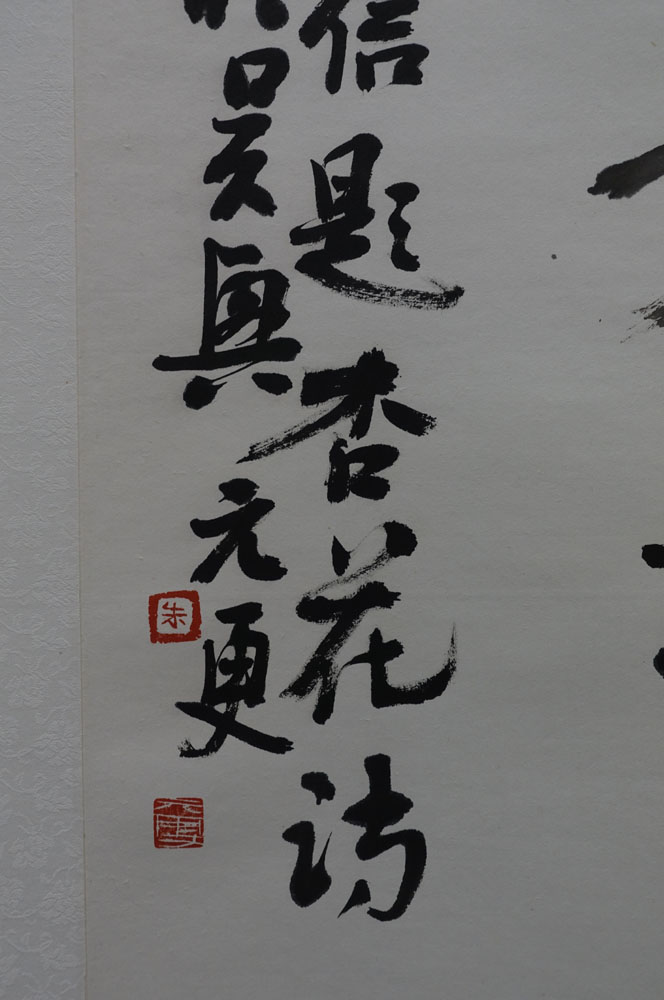 信題杏花詩
吳興元更
朱